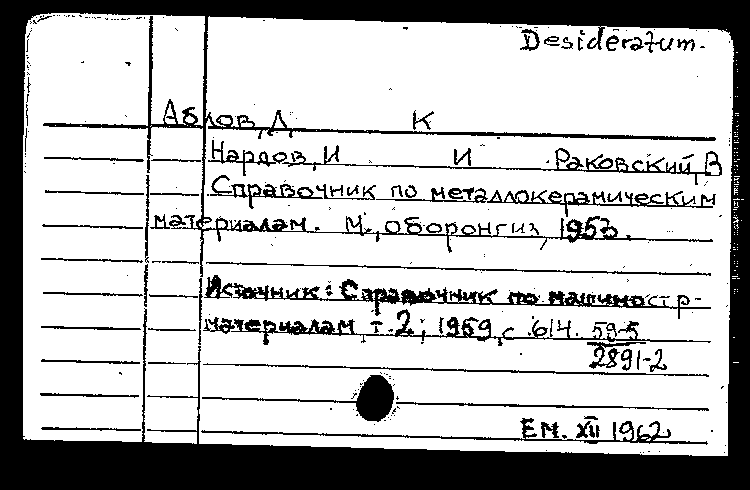 Desideratum.
Аблов, Д. К
Нардов, И И Раковский, В
Справочник по металлокерамическим
материалам. М., оборонгиз, 1953.
Источник: Справочник по машиностр-
материалам, т. 2, 1959, с. 614. 59-5
2891-2
ЕМ. XII 1962